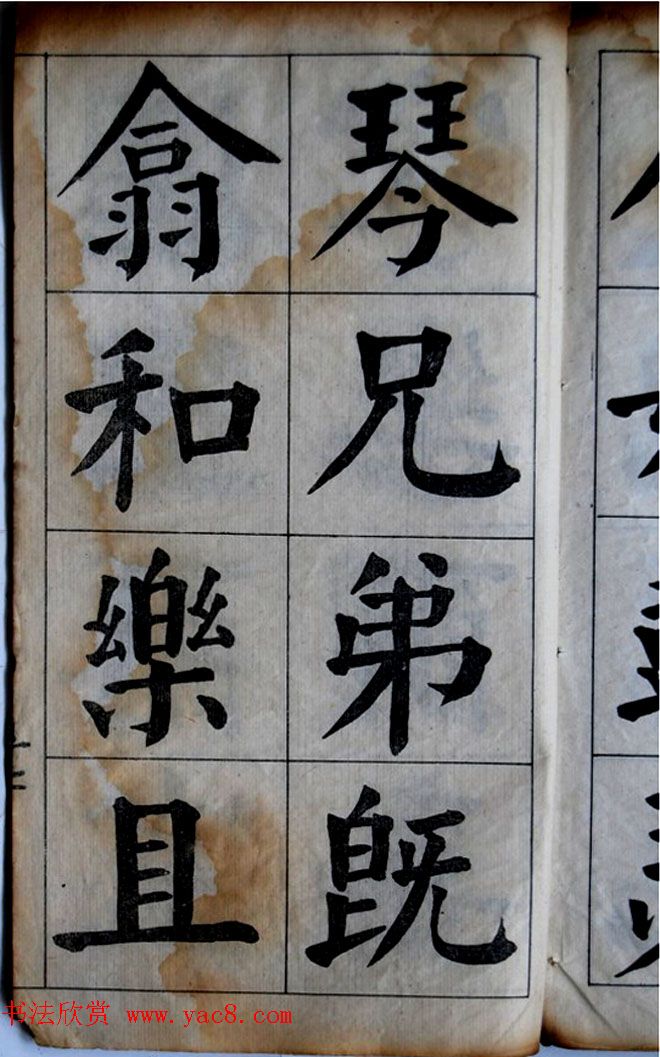 琴兄弟既
翕和樂且
十二
书法欣赏 www.yac8.com